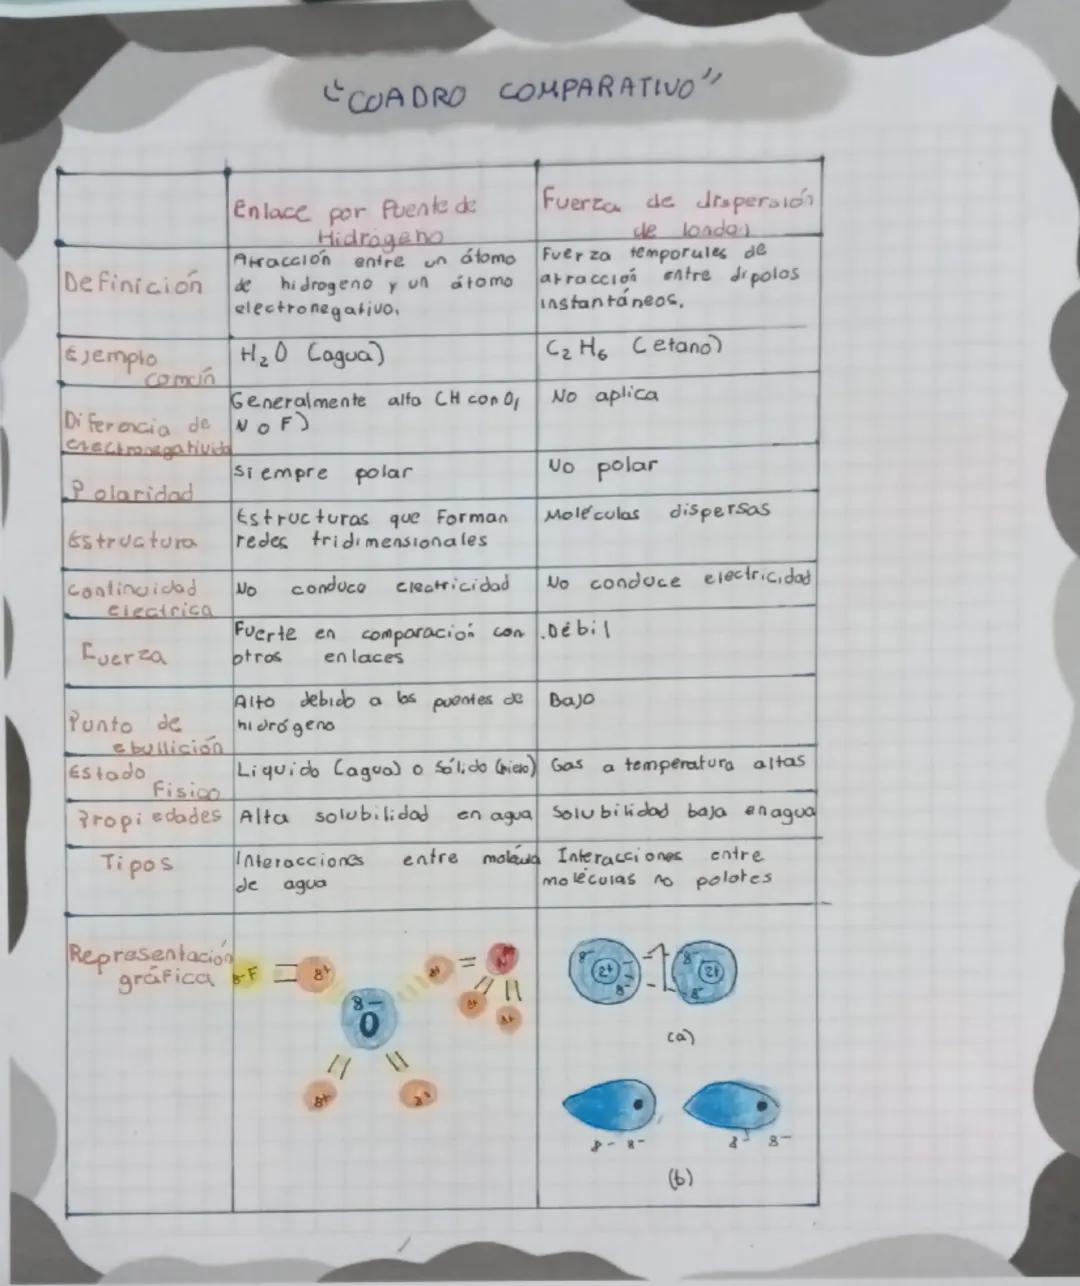 "CUADRO COMPARATIVO"
Enlace por Puente de
Hidrógeno
Fuerza de dispersión
de london
Definición
Atracción entre un átomo
de hidrogeno y un átomo
electronegativo.
Fuerza temporales de
atracción entre dipolos
instantáneos.
Ejemplo
común
H₂O (agua)
C₂H₆ (etano)
Diferencia de
electronegativida
Generalmente alta (H con O,
N o F)
No aplica
Polaridad
Siempre polar
No polar
Estructura
Estructuras que Forman
redes tridimensionales
Moléculas dispersas
Continuidad
electrica
No conduce electricidad
No conduce electricidad
Fuerza
Fuerte en comparación con
otros enlaces
.Débil
Punto de
ebullición
Alto debido a los puentes de
hidrógeno
Bajo
Estado
Fisico
Liquido (agua) o Sólido (hielo)
Gas a temperatura altas
Propiedades
Alta solubilidad en agua
Solubilidad baja en agua
Tipos
Interacciones entre molécula
de agua
Interacciones entre
moléculas no polares
Representación
gráfica
8-F
8+
8-
O
8+
8+
8+
8+
8-
2+
8-
8-
2+
8-
(a)
8- 8-
8- 8-
(b)